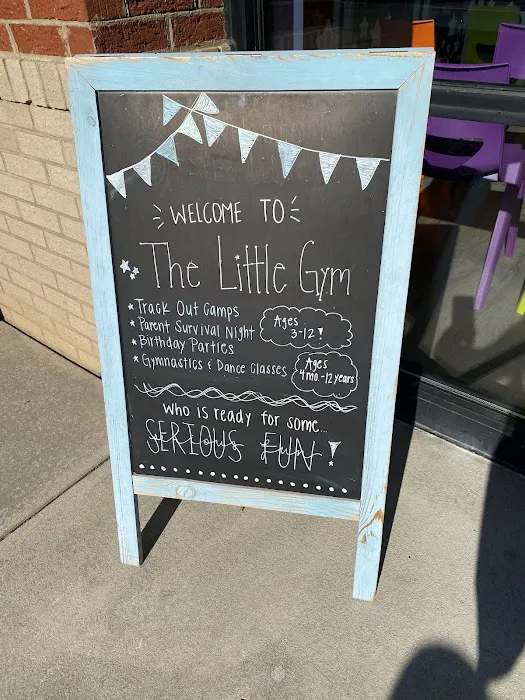 WELCOME TO
The Little Gym
* Track Out Camps
* Parent Survival Night
* Birthday Parties
Ages
3-12!
* Gymnastics & Dance Classes
Ages
4mo.-12years
Who is ready for some...
SERIOUS FUN!